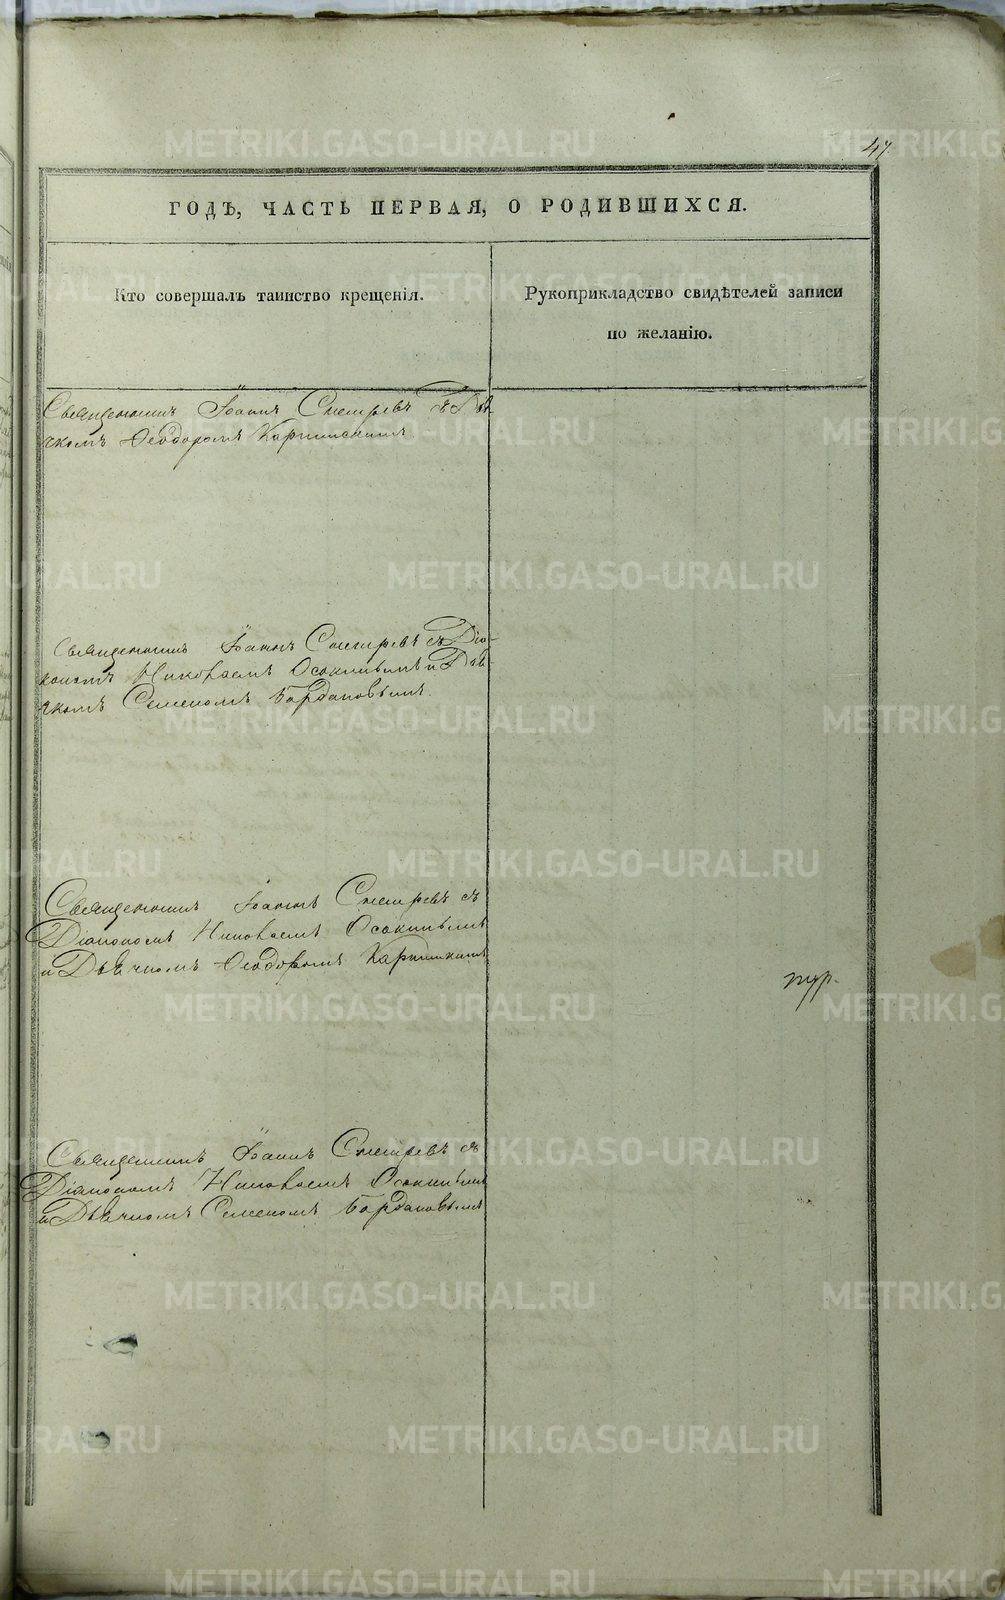 47.
ГОДЪ, ЧАСТЬ ПЕРВАЯ, О РОДИВШИХСЯ.
Кто совершалъ таинство крещенія.
Рукоприкладство свидѣтелей записи
по желанію.
Священникъ Іоаннъ Снегиревъ съ Дья-
чкомъ Ѳеодоромъ Карпинскимъ.
Священникъ Іоаннъ Снегиревъ съ Діа-
кономъ Николаемъ Осокинымъ и Дья-
чкомъ Семеномъ Богдановымъ.
Священникъ Іоаннъ Снегиревъ съ
Діакономъ Николаемъ Осокинымъ
и Дьячкомъ Ѳеодоромъ Карпинскимъ
Священникъ Іоаннъ Снегиревъ съ
Діакономъ Николаемъ Осокинымъ
и Дьячкомъ Семеномъ Богдановымъ
METRIKI.GASO-URAL.RU